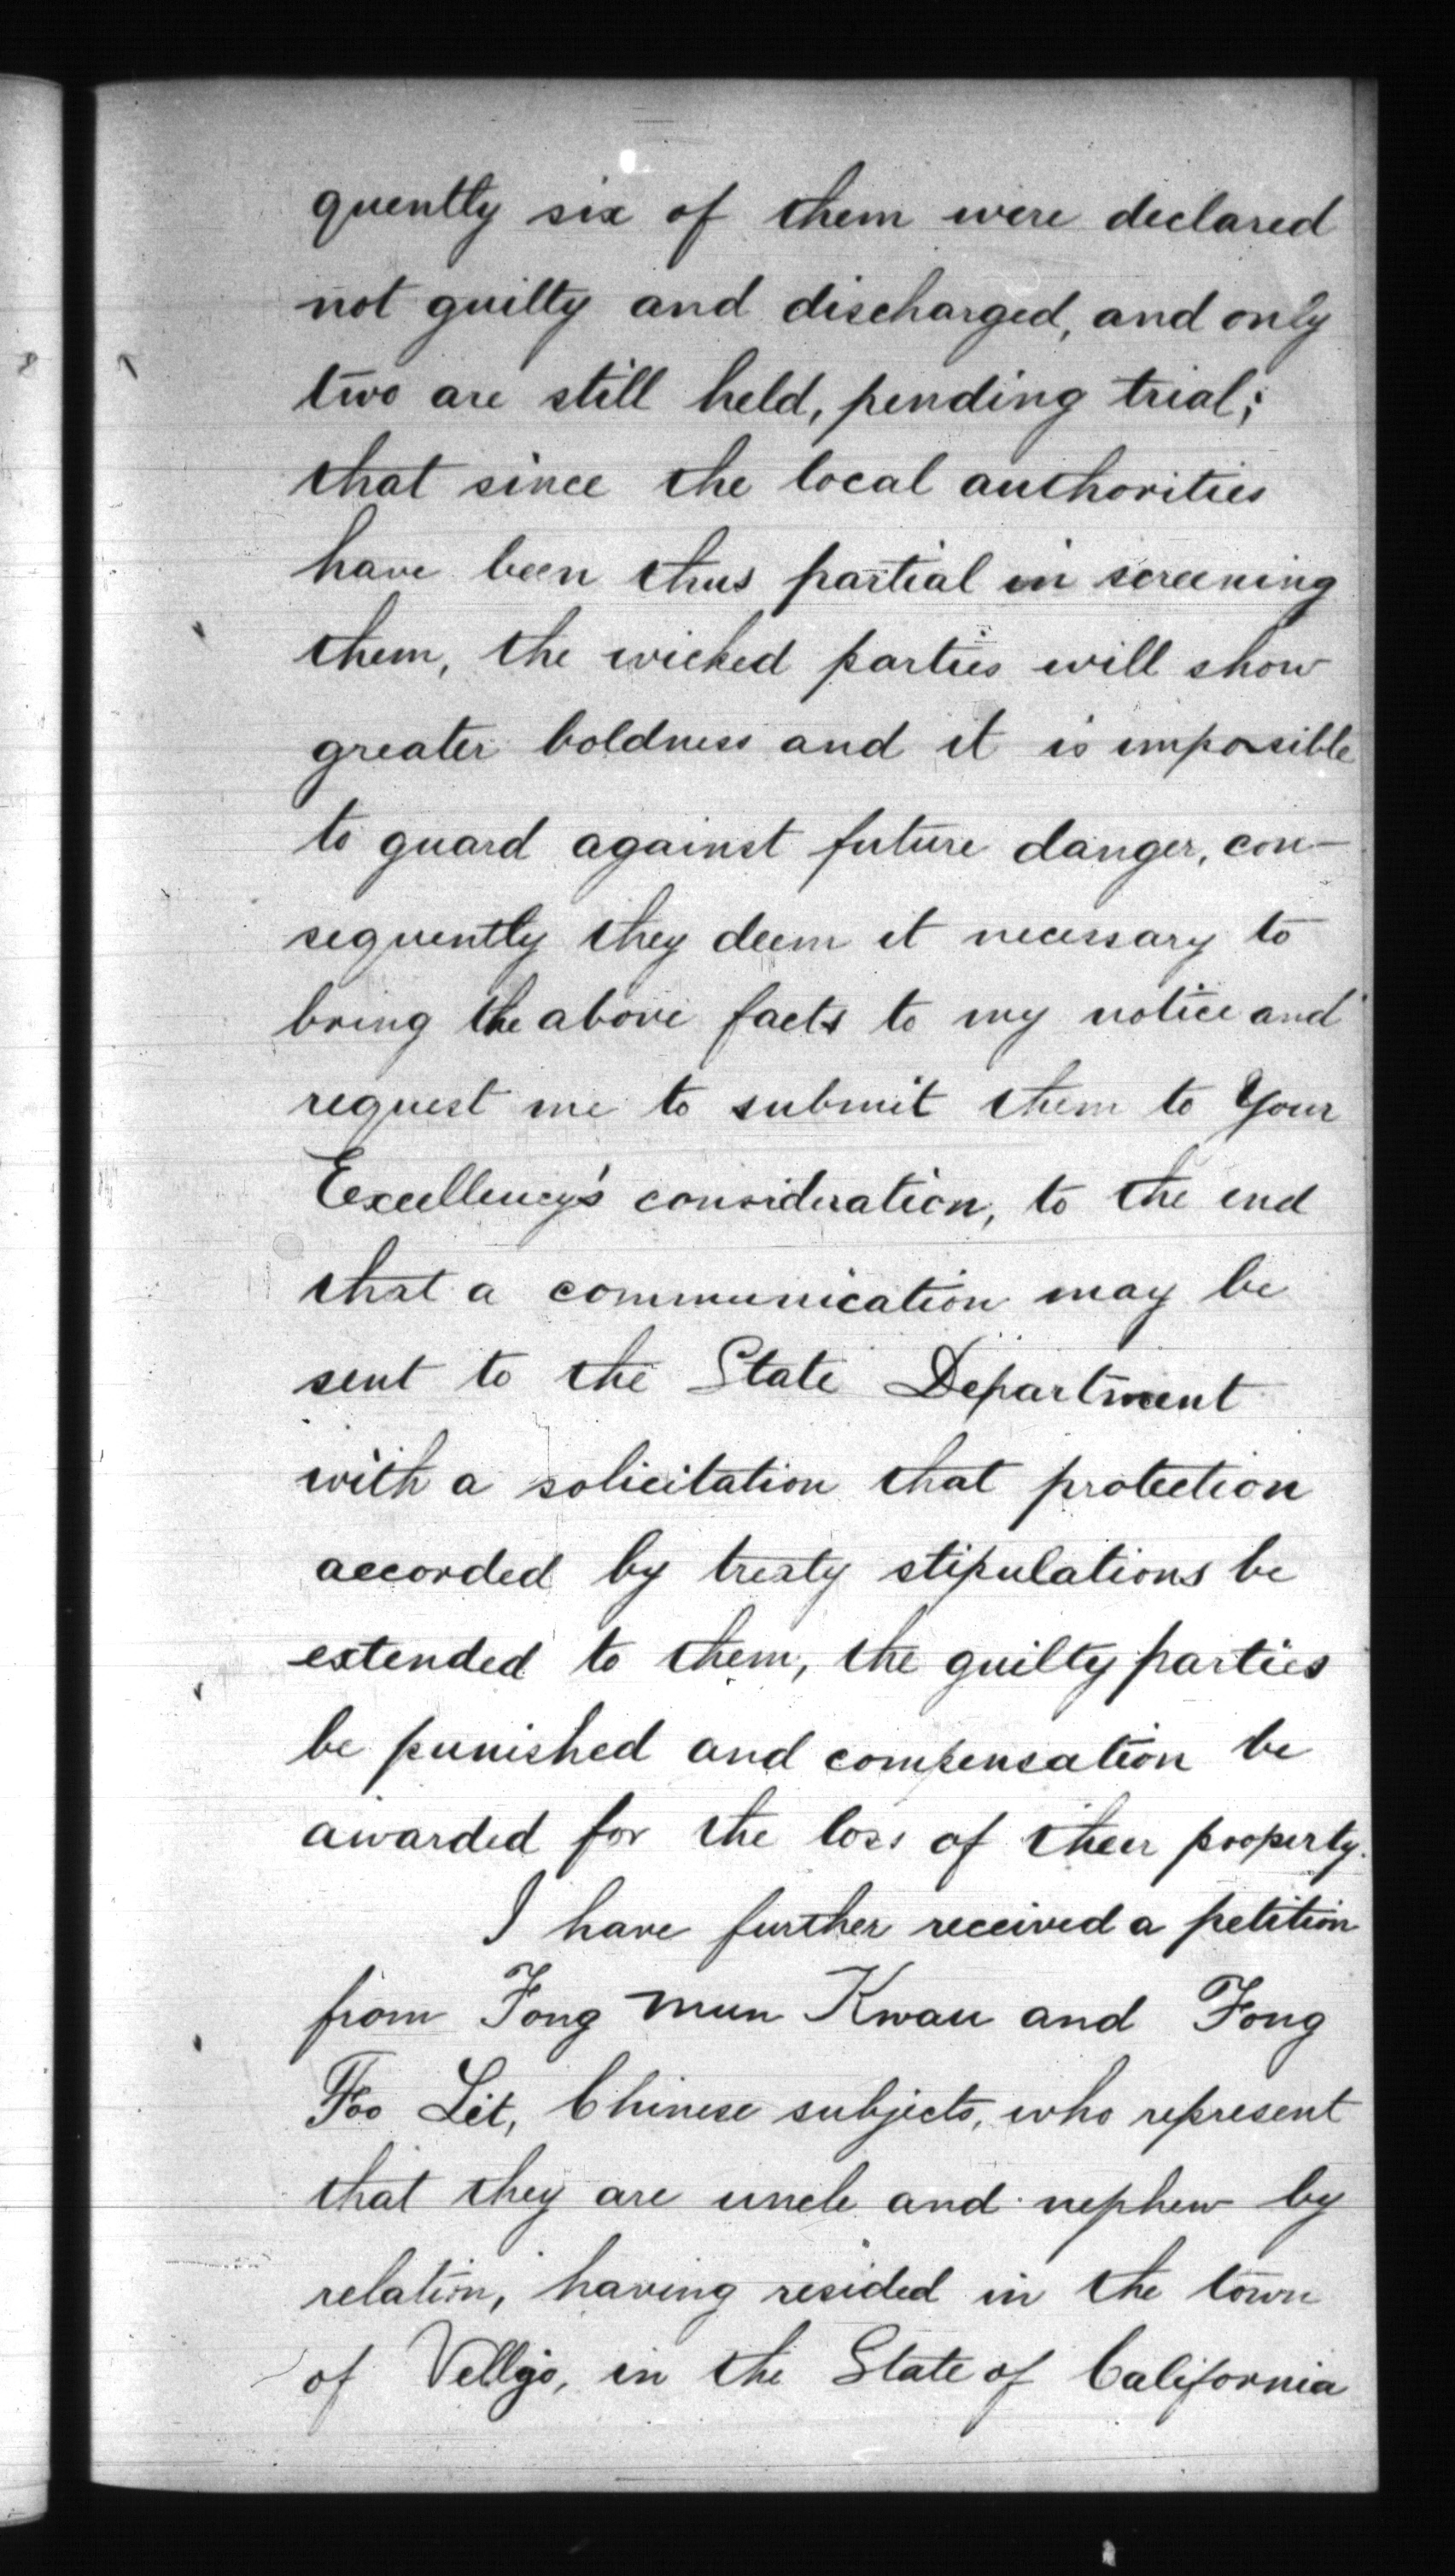 quently six of them were declared
not guilty and discharged, and only
two are still held, pending trial;
that since the local authorities
have been thus partial in screening
them, the wicked parties will show
greater boldness and it is impossible
to guard against future danger, con-
sequently they deem it necessary to
bring the above facts to my notice and
request me to submit them to Your
Excellency's consideration, to the end
that a communication may be
sent to the State Department
with a solicitation that protection
accorded by treaty stipulations be
extended to them, the guilty parties
be punished and compensation be
awarded for the loss of their property.
I have further received a petition
from Fong Mun Kwau and Fong
Foo Lit, Chinese subjects, who represent
that they are uncle and nephew by
relation, having resided in the town
of Vellejo, in the State of California